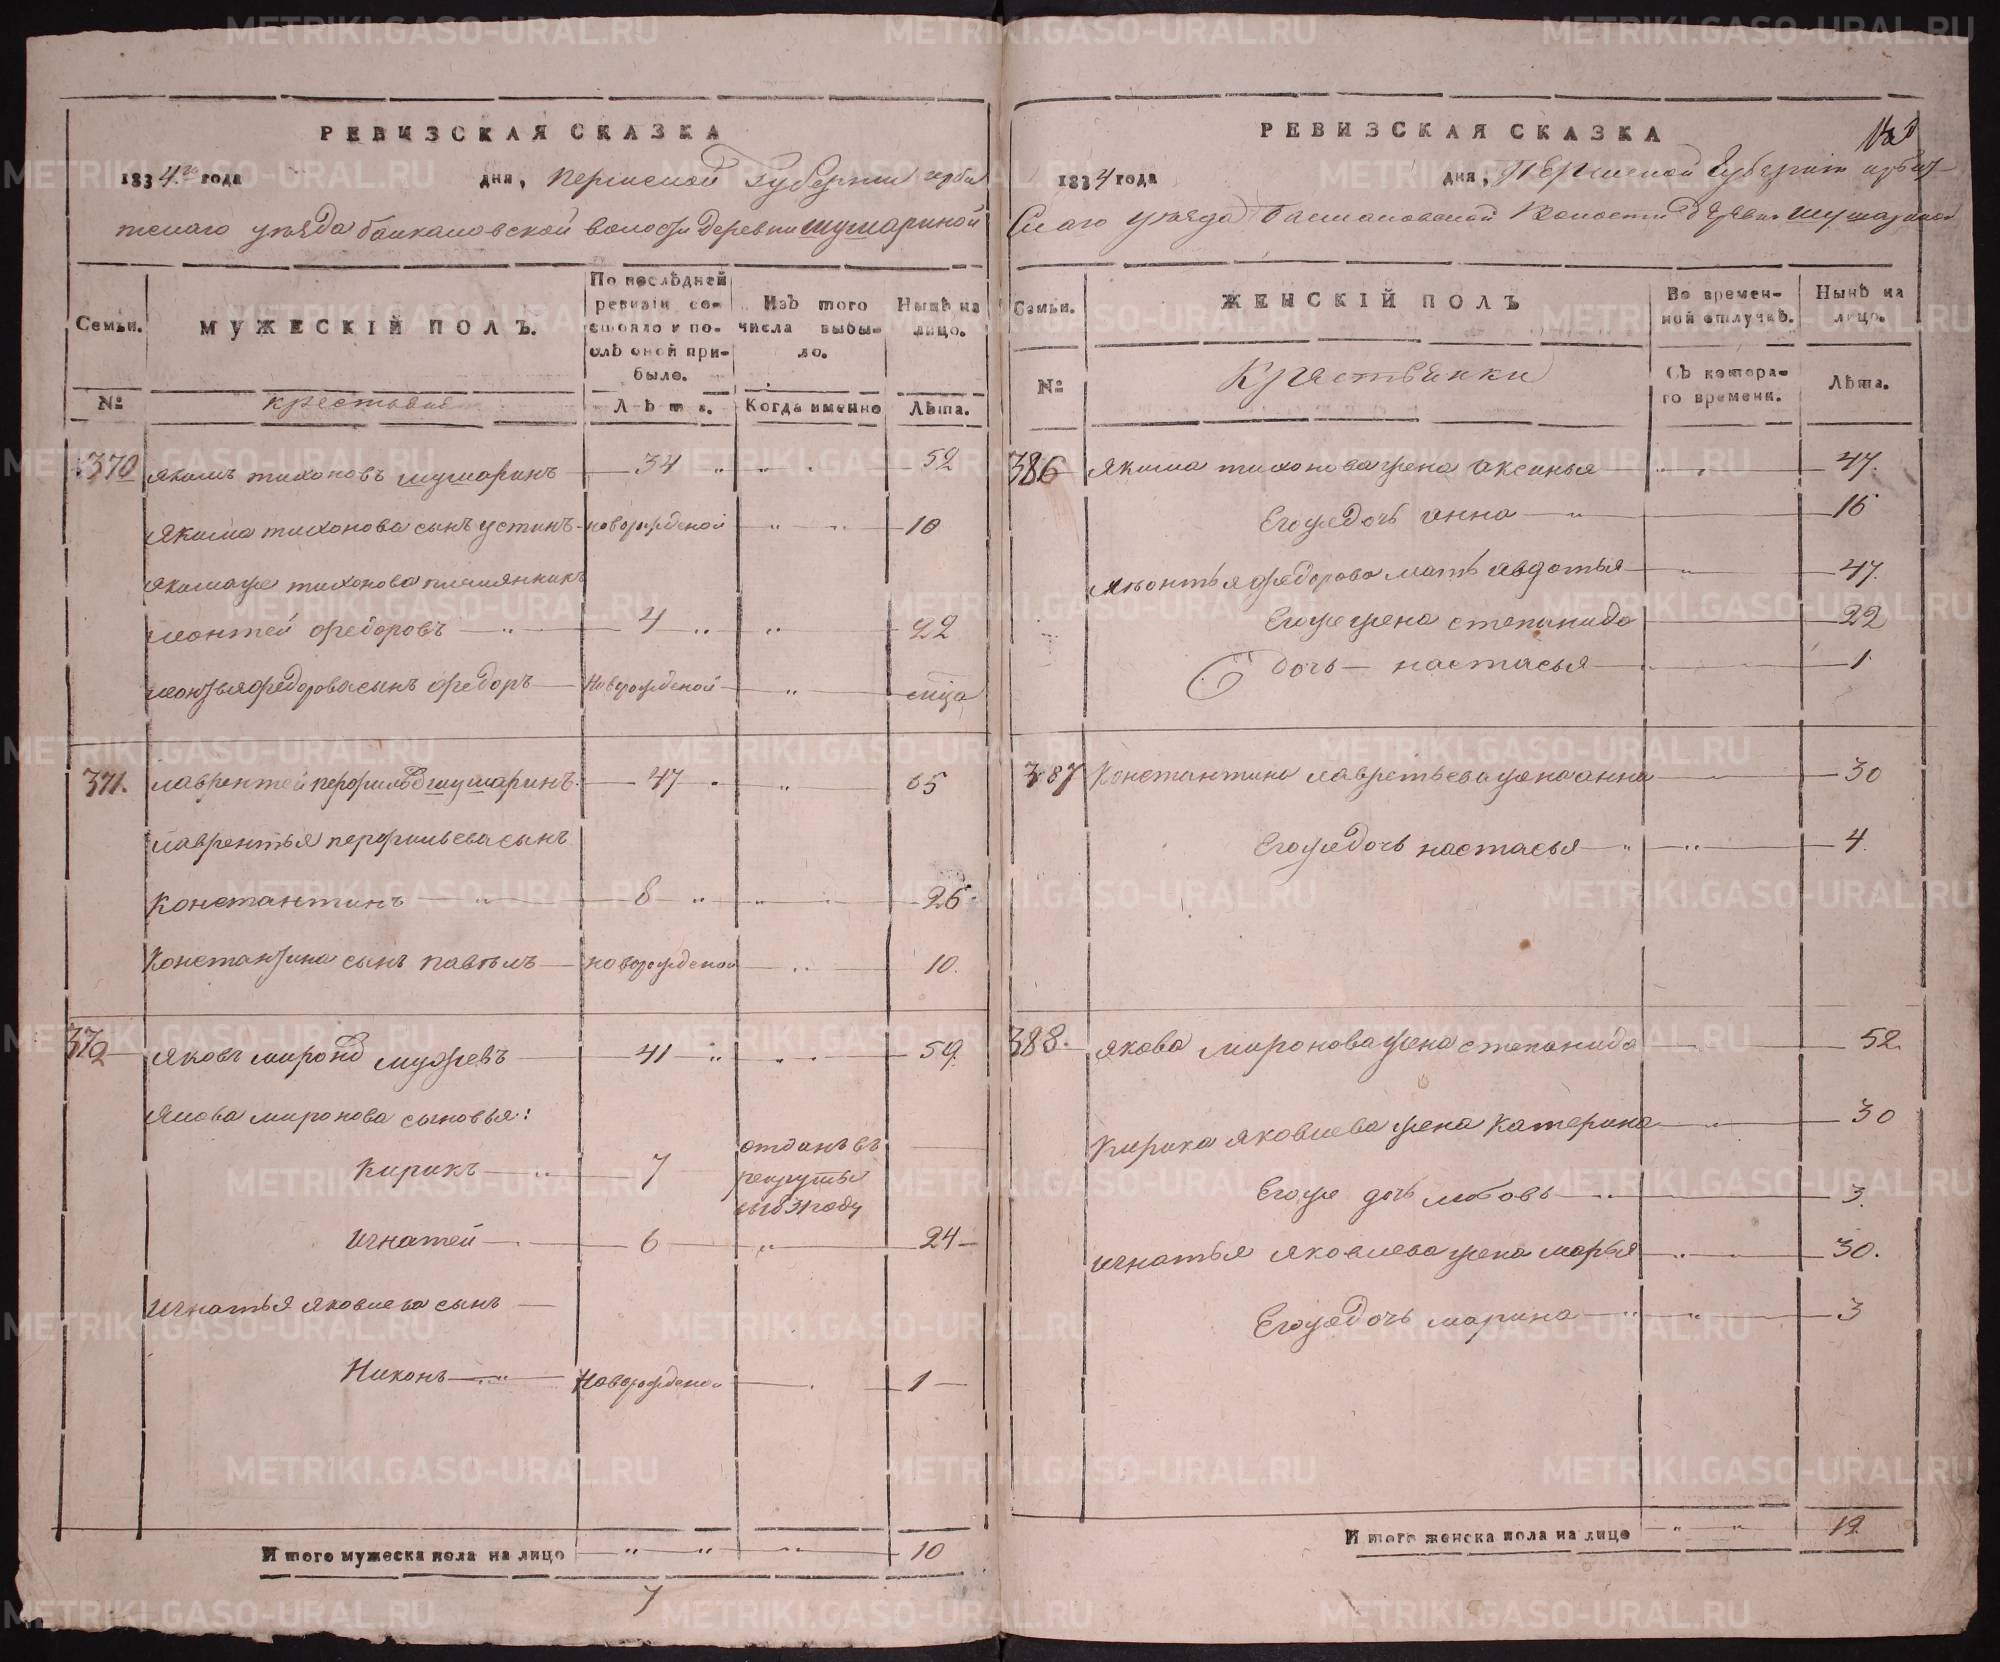 РЕВИЗСКАЯ СКАЗКА
1834 го года дня, пермской Губернии ирби
тскаго уѣзда баикаловской волости деревни шушариной
Семьи. МУЖЕСКІЙ ПОЛЪ. По послѣдней ревизіи состояло и послѣ оной прибыло. Изъ того числа выбыло. Нынѣ на лицо.
№ крестьяне Лѣта. Когда именно Лѣта.
370 якимъ тихоновъ шушаринъ 34 52
якима тихонова сынъ устинъ новорожденой 10
якимаже тихонова племянникъ
леонтей федоровъ 4 22
леонтья федорова сынъ федоръ Новорожденой
371. лаврентей перфильевъ шушаринъ 47 65
лаврентья перфильева сынъ
константинъ 8 26
константина сынъ павелъ новорожденой 10.
372 яковъ миронов мужевъ 41 59.
якова миронова сыновья:
кирикъ 7 отданъ въ рекруты въ 831 году
игнатей 6 24
игнатья яковлева сынъ
Никонъ новорожденой 1
Итого мужеска пола на лицо 10
7
РЕВИЗСКАЯ СКАЗКА
1834 года дня, Пермской Губерніи ирбит
скаго уѣзда Баикаловской волости деревни шушариной
Семьи. ЖЕНСКІЙ ПОЛЪ Во временной отлучкѣ. Нынѣ на лицо.
№ Крестьянки Съ котораго времени. Лѣта.
386 якима тихонова жена аксинья 47.
Егоже дочь анна 16
леонтья федорова мать авдотья 47.
Егоже жена степанида 22
дочь настасья 1
387 константина лавретьева жена анна 30
Егоже дочь настасья 4.
388. якова миронова жена степанида 52.
кирика яковлева жена катерина 30
Егоже дочь любовь 3.
игнатья яковлева жена марья 30.
Егоже дочь марина 3
Итого женска пола на лицо 12.
METRIKI.GASO-URAL.RU